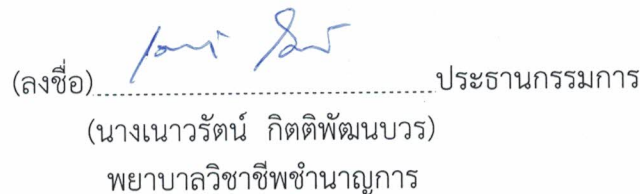 (ลงชื่อ)........................................ประธานกรรมการ
(นางเนาวรัตน์ กิตติพัฒนบวร)
พยาบาลวิชาชีพชำนาญการ